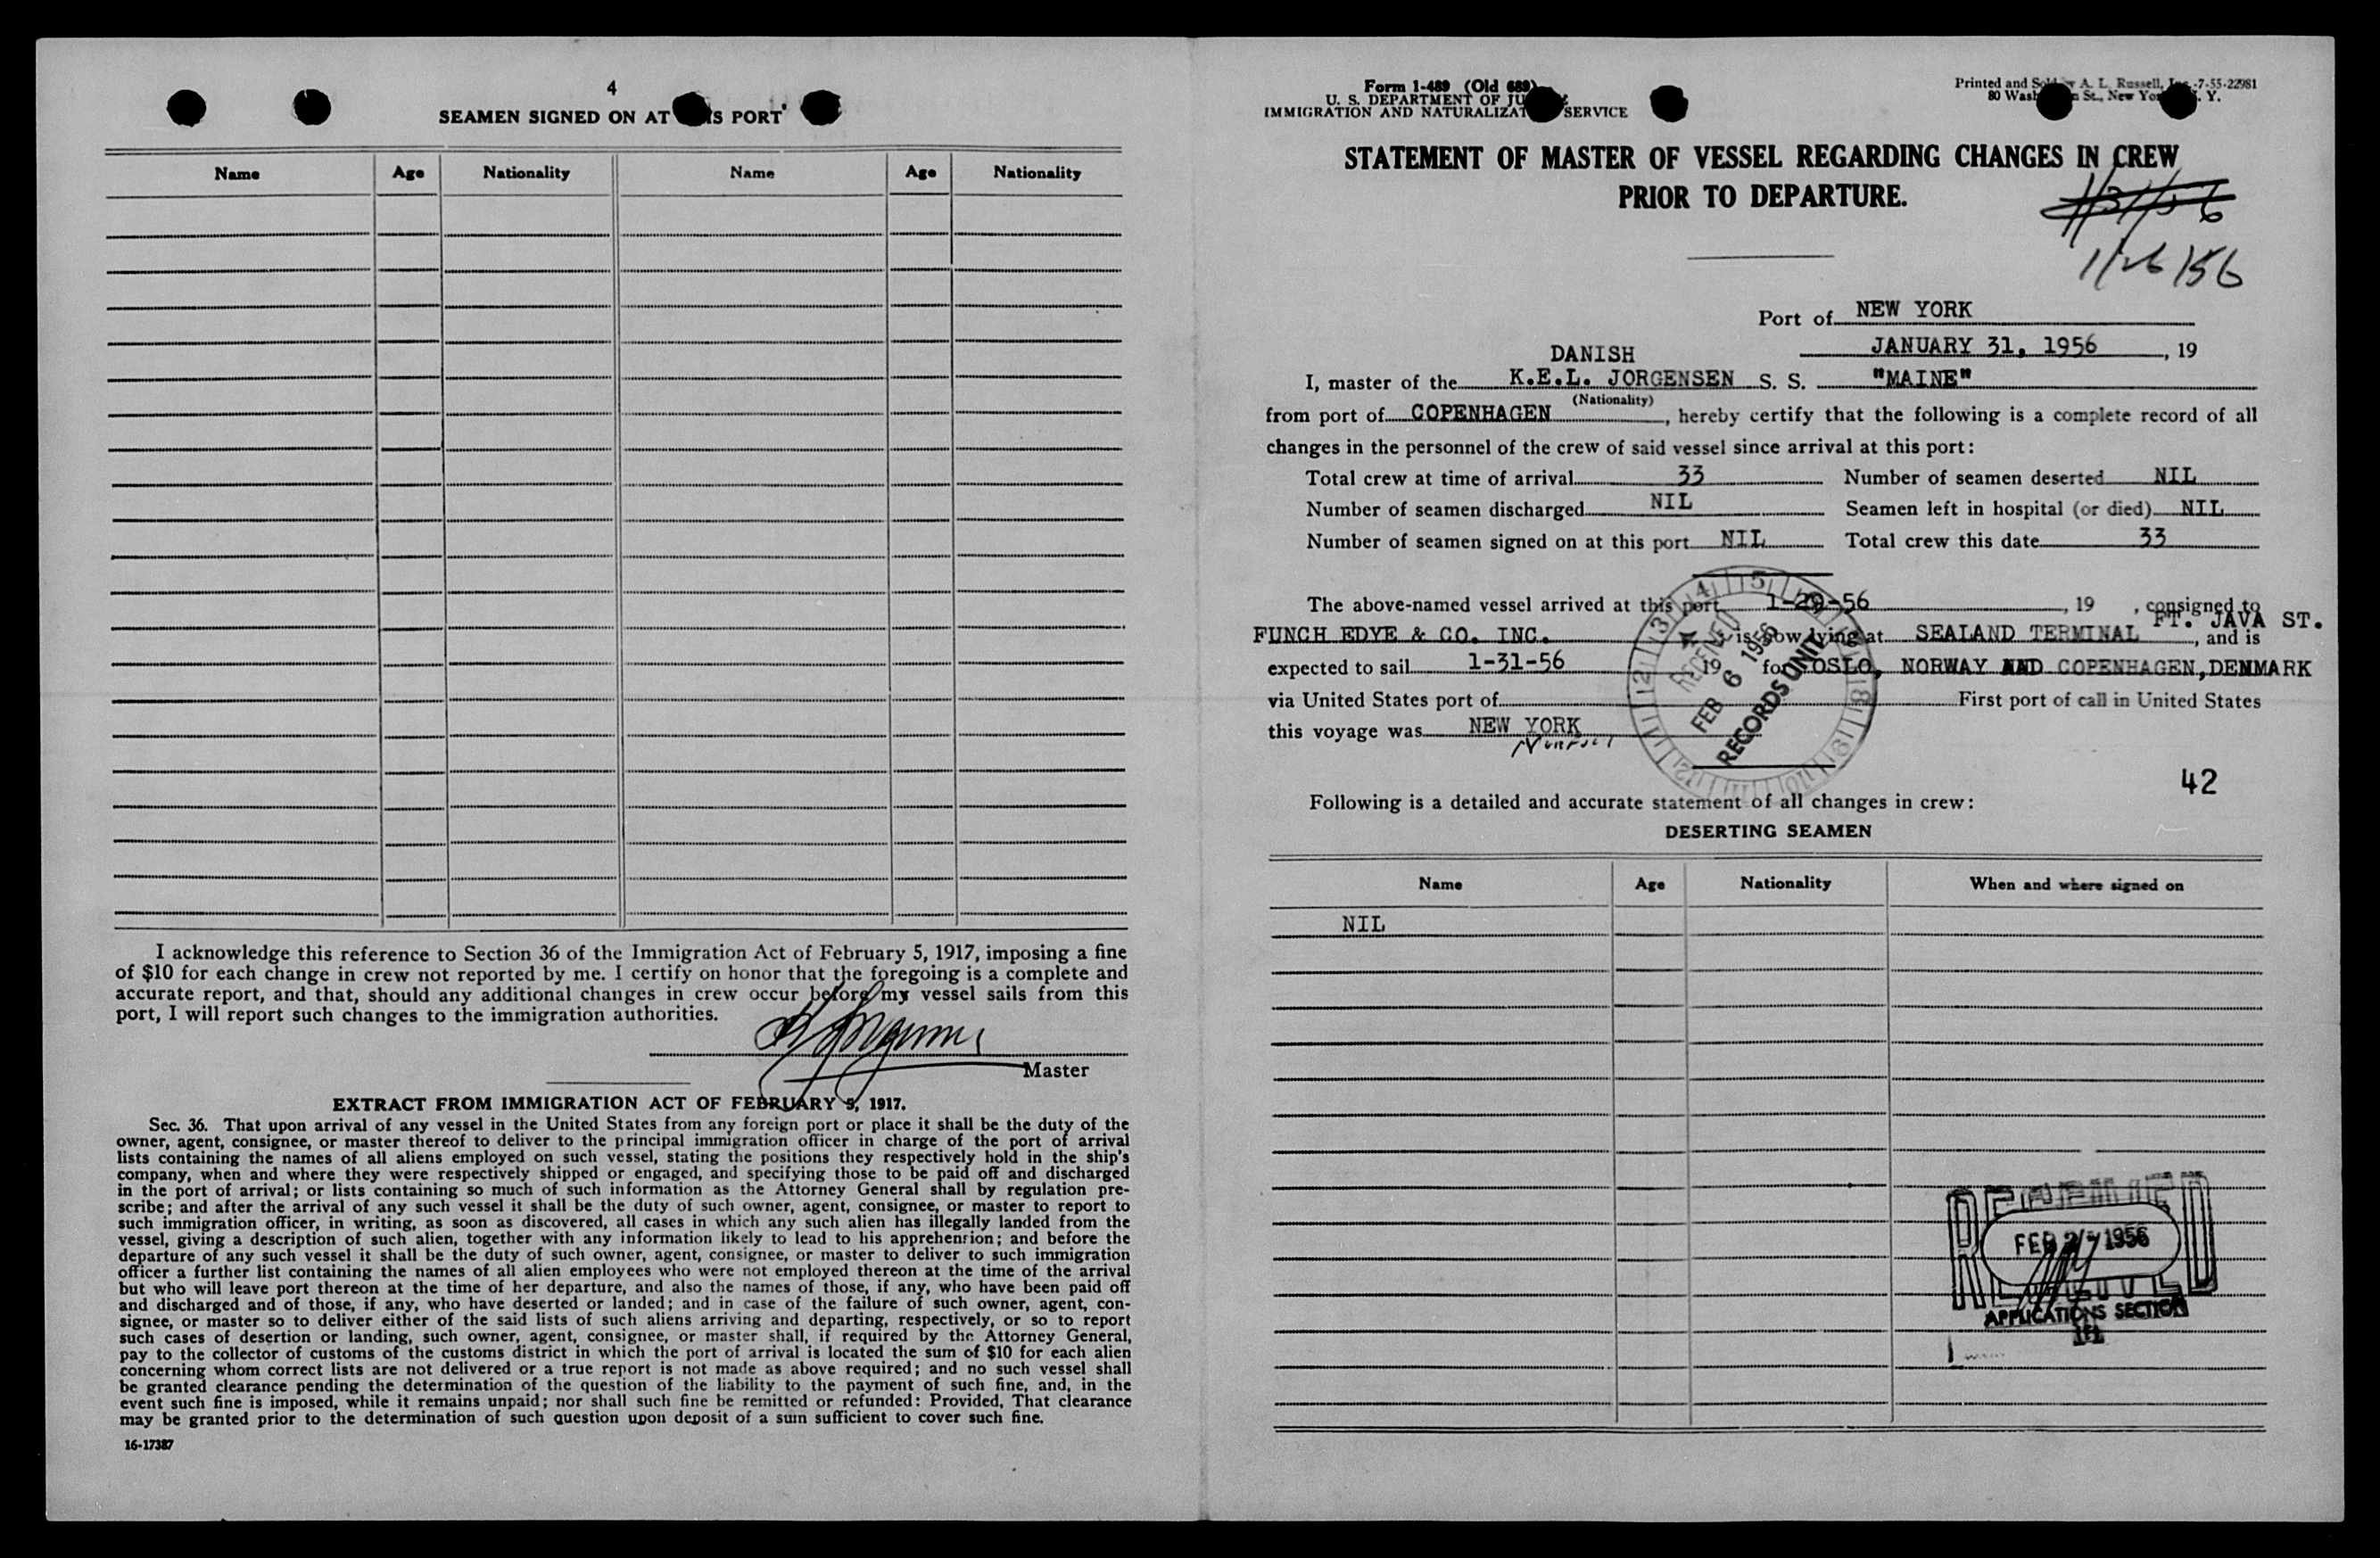 4
SEAMEN SIGNED ON AT THIS PORT
Name Age Nationality Name Age Nationality
I acknowledge this reference to Section 36 of the Immigration Act of February 5, 1917, imposing a fine
of $10 for each change in crew not reported by me. I certify on honor that the foregoing is a complete and
accurate report, and that, should any additional changes in crew occur before my vessel sails from this
port, I will report such changes to the immigration authorities.
Master
EXTRACT FROM IMMIGRATION ACT OF FEBRUARY 5, 1917.
Sec. 36. That upon arrival of any vessel in the United States from any foreign port or place it shall be the duty of the
owner, agent, consignee, or master thereof to deliver to the principal immigration officer in charge of the port of arrival
lists containing the names of all aliens employed on such vessel, stating the positions they respectively hold in the ship's
company, when and where they were respectively shipped or engaged, and specifying those to be paid off and discharged
in the port of arrival; or lists containing so much of such information as the Attorney General shall by regulation pre-
scribe; and after the arrival of any such vessel it shall be the duty of such owner, agent, consignee, or master to report to
such immigration officer, in writing, as soon as discovered, all cases in which any such alien has illegally landed from the
vessel, giving a description of such alien, together with any information likely to lead to his apprehension; and before the
departure of any such vessel it shall be the duty of such owner, agent, consignee, or master to deliver to such immigration
officer a further list containing the names of all alien employees who were not employed thereon at the time of the arrival
but who will leave port thereon at the time of her departure, and also the names of those, if any, who have been paid off
and discharged and of those, if any, who have deserted or landed; and in case of the failure of such owner, agent, con-
signee, or master so to deliver either of the said lists of such aliens arriving and departing, respectively, or so to report
such cases of desertion or landing, such owner, agent, consignee, or master shall, if required by the Attorney General,
pay to the collector of customs of the customs district in which the port of arrival is located the sum of $10 for each alien
concerning whom correct lists are not delivered or a true report is not made as above required; and no such vessel shall
be granted clearance pending the determination of the question of the liability to the payment of such fine, and, in the
event such fine is imposed, while it remains unpaid; nor shall such fine be remitted or refunded: Provided, That clearance
may be granted prior to the determination of such question upon deposit of a sum sufficient to cover such fine.
16-17387
Form 1-489 (Old 689)
U. S. DEPARTMENT OF JUSTICE
IMMIGRATION AND NATURALIZATION SERVICE
Printed and Sold by A. L. Russell, Inc.-7-55-22981
80 Washington St., New York, N. Y.
STATEMENT OF MASTER OF VESSEL REGARDING CHANGES IN CREW
PRIOR TO DEPARTURE.
1/31/56
1/26/56
Port of NEW YORK
JANUARY 31, 1956, 19
DANISH
I, master of the K.E.L. JORGENSEN S. S. "MAINE"
(Nationality)
from port of COPENHAGEN, hereby certify that the following is a complete record of all
changes in the personnel of the crew of said vessel since arrival at this port:
Total crew at time of arrival 33 Number of seamen deserted NIL
Number of seamen discharged NIL Seamen left in hospital (or died) NIL
Number of seamen signed on at this port NIL Total crew this date 33
The above-named vessel arrived at this port 1-29-56, 19 , consigned to
FUNCH EDYE & CO. INC. is now lying at SEALAND TERMINAL FT. JAVA ST., and is
expected to sail 1-31-56 19 for OSLO, NORWAY AND COPENHAGEN, DENMARK
via United States port of First port of call in United States
this voyage was NEW YORK
RECEIVED
FEB 6 1956
RECORDS UNIT
42
Following is a detailed and accurate statement of all changes in crew:
DESERTING SEAMEN
Name Age Nationality When and where signed on
NIL
RECEIVED
FEB 1956
APPLICATIONS SECTION